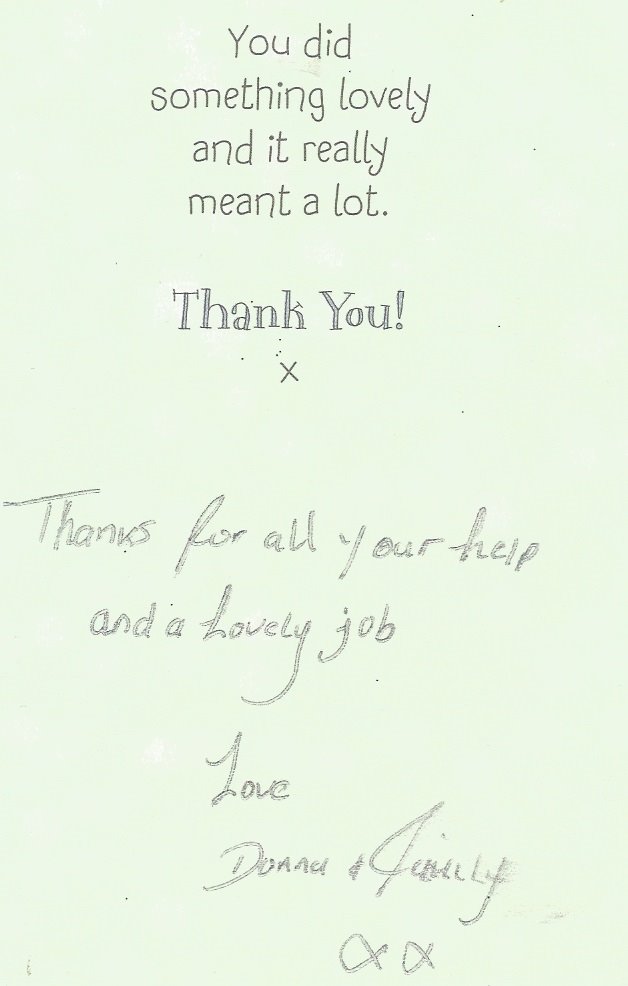 You did
something lovely
and it really
meant a lot.
Thank You!
x
Thanks for all your help
and a Lovely job
Love
Donna &
xx